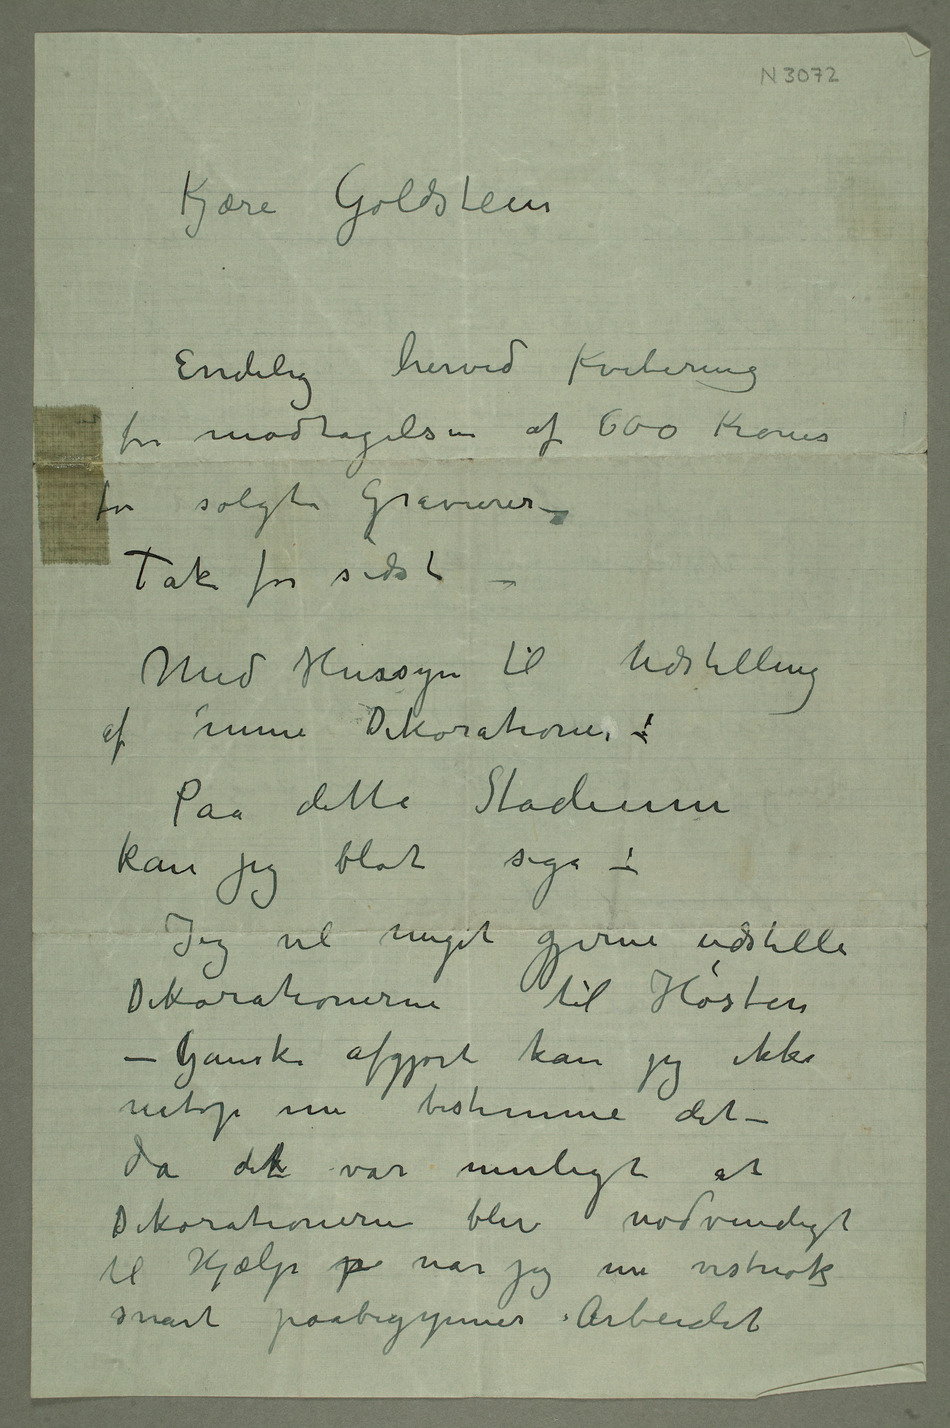 N 3072
Kjære Goldstein
Endelig herved Kvitering
for modtagelsen af 600 Kroner
for solgte Gravurer –
Tak for sidst –
Med Hensyn til Udstilling
af mine Dekorationer –:
Paa dette Stadium
kan jeg blot sige –:
Jeg vil meget gjerne udstille
Dekorationerne til Høsten
– Ganske afgjort kan jeg ikke
netop nu bestemme det –
da det var muligt at
Dekorationerne blir nødvendigt
til Hjælp når jeg nu vistnok
snart paabegynner Arbeidet